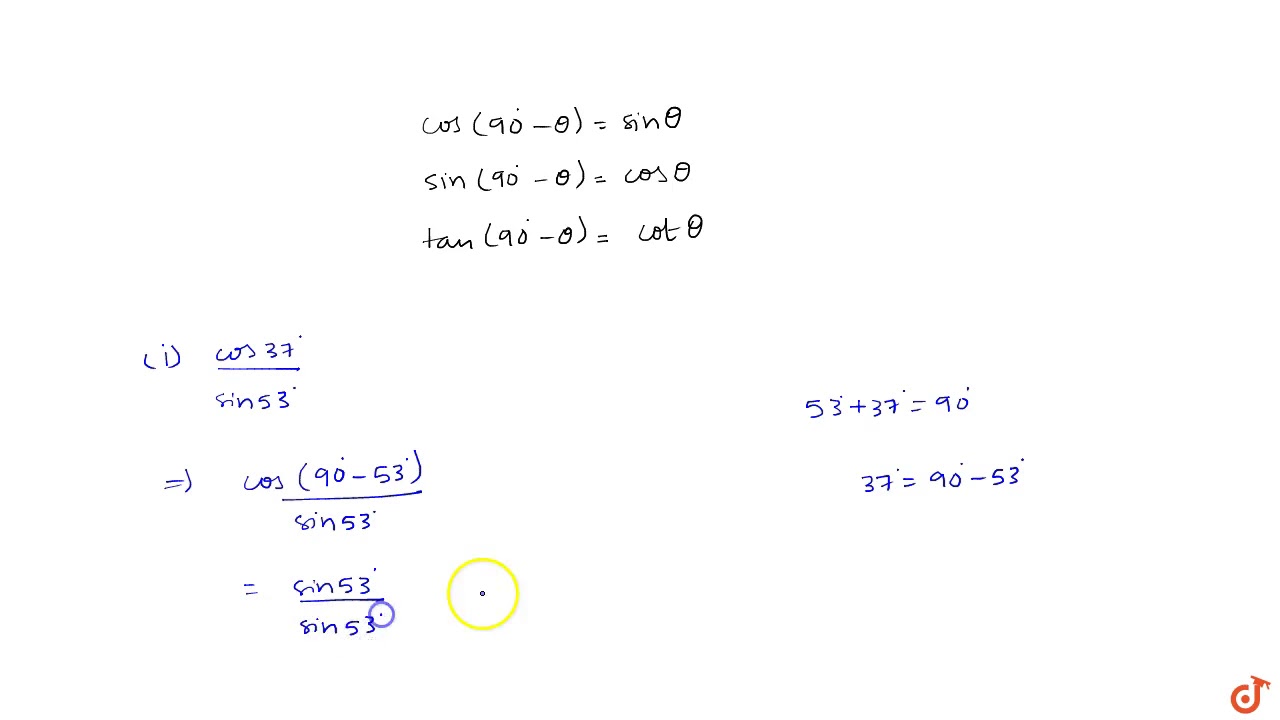 cos (90° - θ) = sin θ
sin (90° - θ) = cos θ
tan (90° - θ) = cot θ
(i) cos 37°
sin 53°
53° + 37° = 90°
=> cos (90° - 53°)
sin 53°
37° = 90° - 53°
= sin 53°
sin 53°